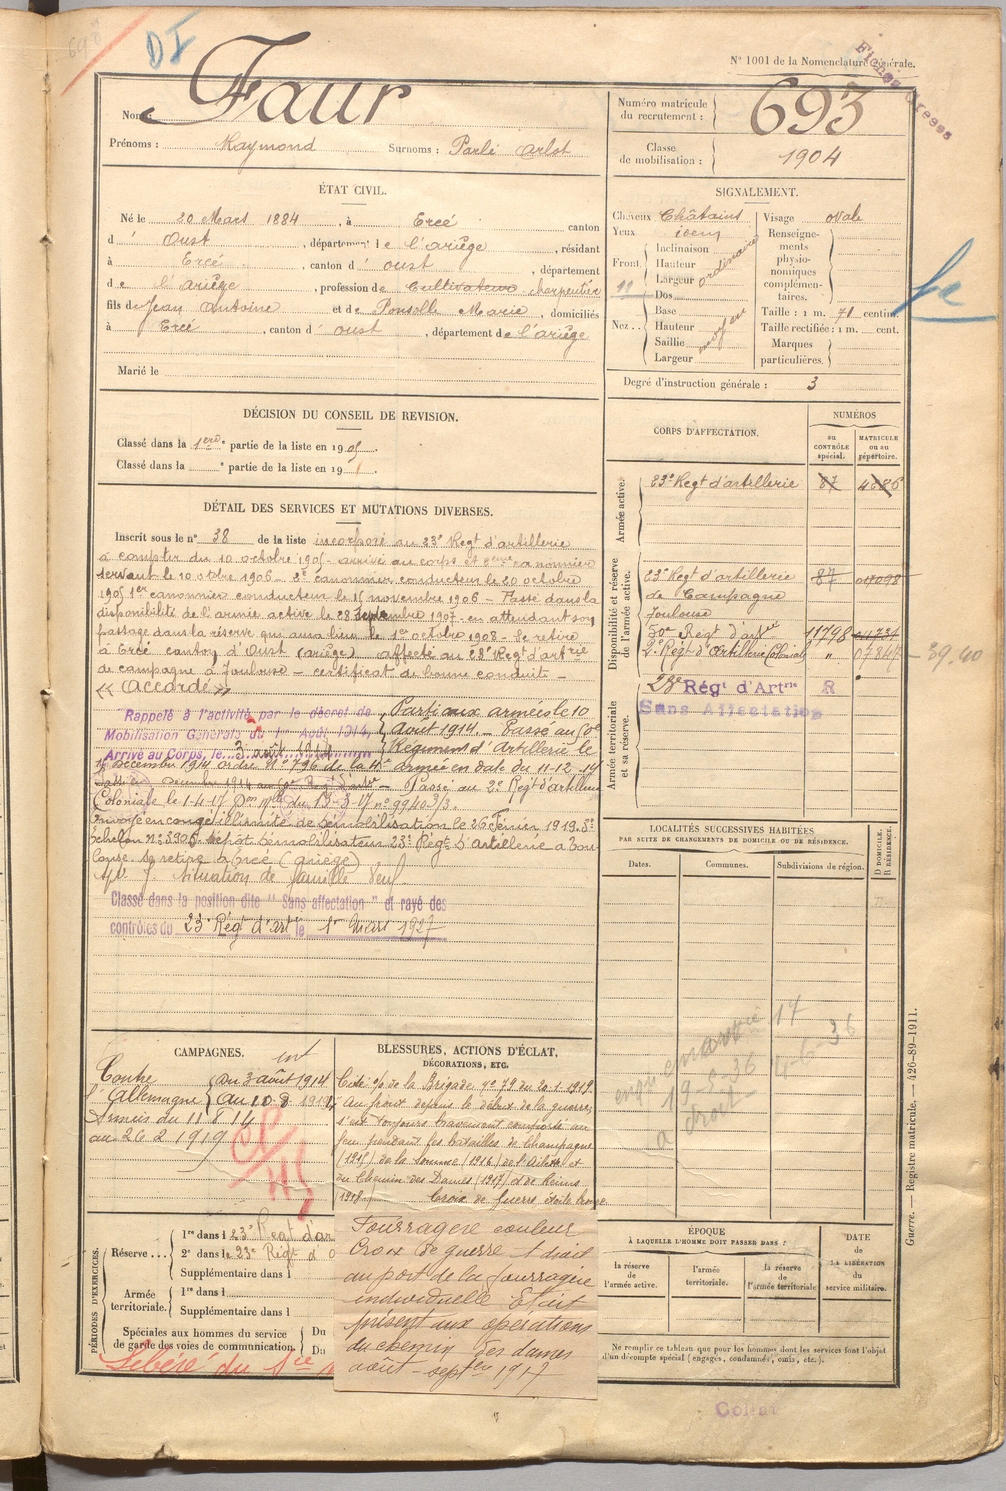 DI
N° 1001 de la Nomenclature générale.
Nom: Faur
Prénoms : Raymond Surnoms : Parlé Arlot
Numéro matricule du recrutement : 693
Classe de mobilisation : 1904
ÉTAT CIVIL.
Né le 20 Mars 1884, à Ercé canton
d' Oust, département de l'ariège, résidant
à Ercé, canton d' oust, département
de l'ariège, profession de Cultivateur charpentier
fils de Jean Antoine et de Ponsolle Marie, domiciliés
à Ercé, canton d' oust, département de l'ariège
Marié le
SIGNALEMENT.
Cheveux Châtains
Yeux
Front. Inclinaison
Hauteur
Largeur ordinaire
Nez. Dos
Base
Hauteur moyen
Saillie
Largeur
Visage ovale
Renseignements physionomiques complémentaires.
Taille : 1 m. 71 centim.
Taille rectifiée : 1 m. cent.
Marques particulières.
Degré d'instruction générale : 3
DÉCISION DU CONSEIL DE REVISION.
Classé dans la 1ère partie de la liste en 1905.
Classé dans la e partie de la liste en 19
DÉTAIL DES SERVICES ET MUTATIONS DIVERSES.
Inscrit sous le n° 38 de la liste incorporé au 23e Regt d'artillerie
à compter du 10 octobre 1905 - arrivé au corps et 2eme canonnier
servant le 10 octobre 1906 - 2e canonnier conducteur le 20 octobre
1905 1er canonnier conducteur le 15 novembre 1906 - Passé dans la
disponibilité de l'armée active le 28 Septembre 1907 en attendant son
passage dans la réserve qui aura lieu le 1er octobre 1908 - Se retire
à Ercé canton d'Oust (ariège) affecté au 23e Regt d'artrie
de campagne à Toulouse - certificat de bonne conduite -
« Accordé »
Rappelé à l'activité par le décret de
Mobilisation Générale du 1er Août 1914,
Arrivé au Corps, le 3 août 1914
Parti aux armées le 10
Août 1914 - Passé au 50e
Régiment d'Artillerie le
Décembre 1914 ordre N° 796 de la 4e armée en date du 11-12-14
Passé au 2e Regt d'artillerie
Coloniale le 1-4-17 Don Mlle du 13-3-17 n° 9940 3/3.
Envoyé en congé illimité de démobilisation le 26 Février 1919. 3e
échelon n° 3905 dépôt démobilisateur 23e Régt d'Artillerie à Toulouse
se retire à Ercé (ariège)
situation de famille Veuf
Classé dans la position dite "Sans affectation" et rayé des
contrôles du 23e Régt d'Artie le 1er Mars 1927
CORPS D'AFFECTATION.
NUMÉROS
au contrôle spécial.
MATRICULE ou au répertoire.
Armée active.
23e Regt d'artillerie 87 4686
Disponibilité et réserve de l'armée active.
23e Regt d'artillerie 87
de Campagne
Toulouse
50e Regt d'artie 11798
2e Régt d'Artillerie Coloniale " 07847
39.40
Armée territoriale et sa réserve.
23e Régt d'Artrie R
Sans Affectation
LOCALITÉS SUCCESSIVES HABITÉES
PAR SUITE DE CHANGEMENTS DE DOMICILE OU DE RÉSIDENCE.
Dates. Communes. Subdivisions de région. D DOMICILE. R RÉSIDENCE.
19-5-36
à droit
CAMPAGNES.
Contre l'Allemagne int
du 3 août 1914
au 10-8 1914
Armées du 11 8 14
au 26 2 1919
BLESSURES, ACTIONS D'ÉCLAT,
DÉCORATIONS, ETC.
Cité o/o de la Brigade n° 79 du 20.1.1919.
Au front depuis le début de la guerre
s'est toujours bravement comporté au
feu pendant les batailles de Champagne
(1915) de la Somme (1916) de l'Ailette et
du Chemin des Dames (1917) et de Reims
1918. Croix de guerre étoile bronze
Fourragère couleur
Croix de guerre 1 droit
au port de la fourragère
individuelle Etait
présent aux opérations
du chemin des dames
août - septbre 1917
PÉRIODES D'EXERCICES.
Réserve... 1re dans le 23e Regt d'ar
2e dans le 23e Régt d
Supplémentaire dans l
Armée territoriale. 1re dans l
Supplémentaire dans l
Spéciales aux hommes du service
de garde des voies de communication. Du
Du
Libéré du Sce
ÉPOQUE
À LAQUELLE L'HOMME DOIT PASSER DANS :
la réserve de l'armée active.
l'armée territoriale.
la réserve de l'armée territoriale
DATE
de
LA LIBÉRATION
du
service militaire.
Ne remplir ce tableau que pour les hommes dont les services font l'objet
d'un décompte spécial (engagés, condamnés, omis, etc.).
Guerre. — Registre matricule. — 426-89-1911.